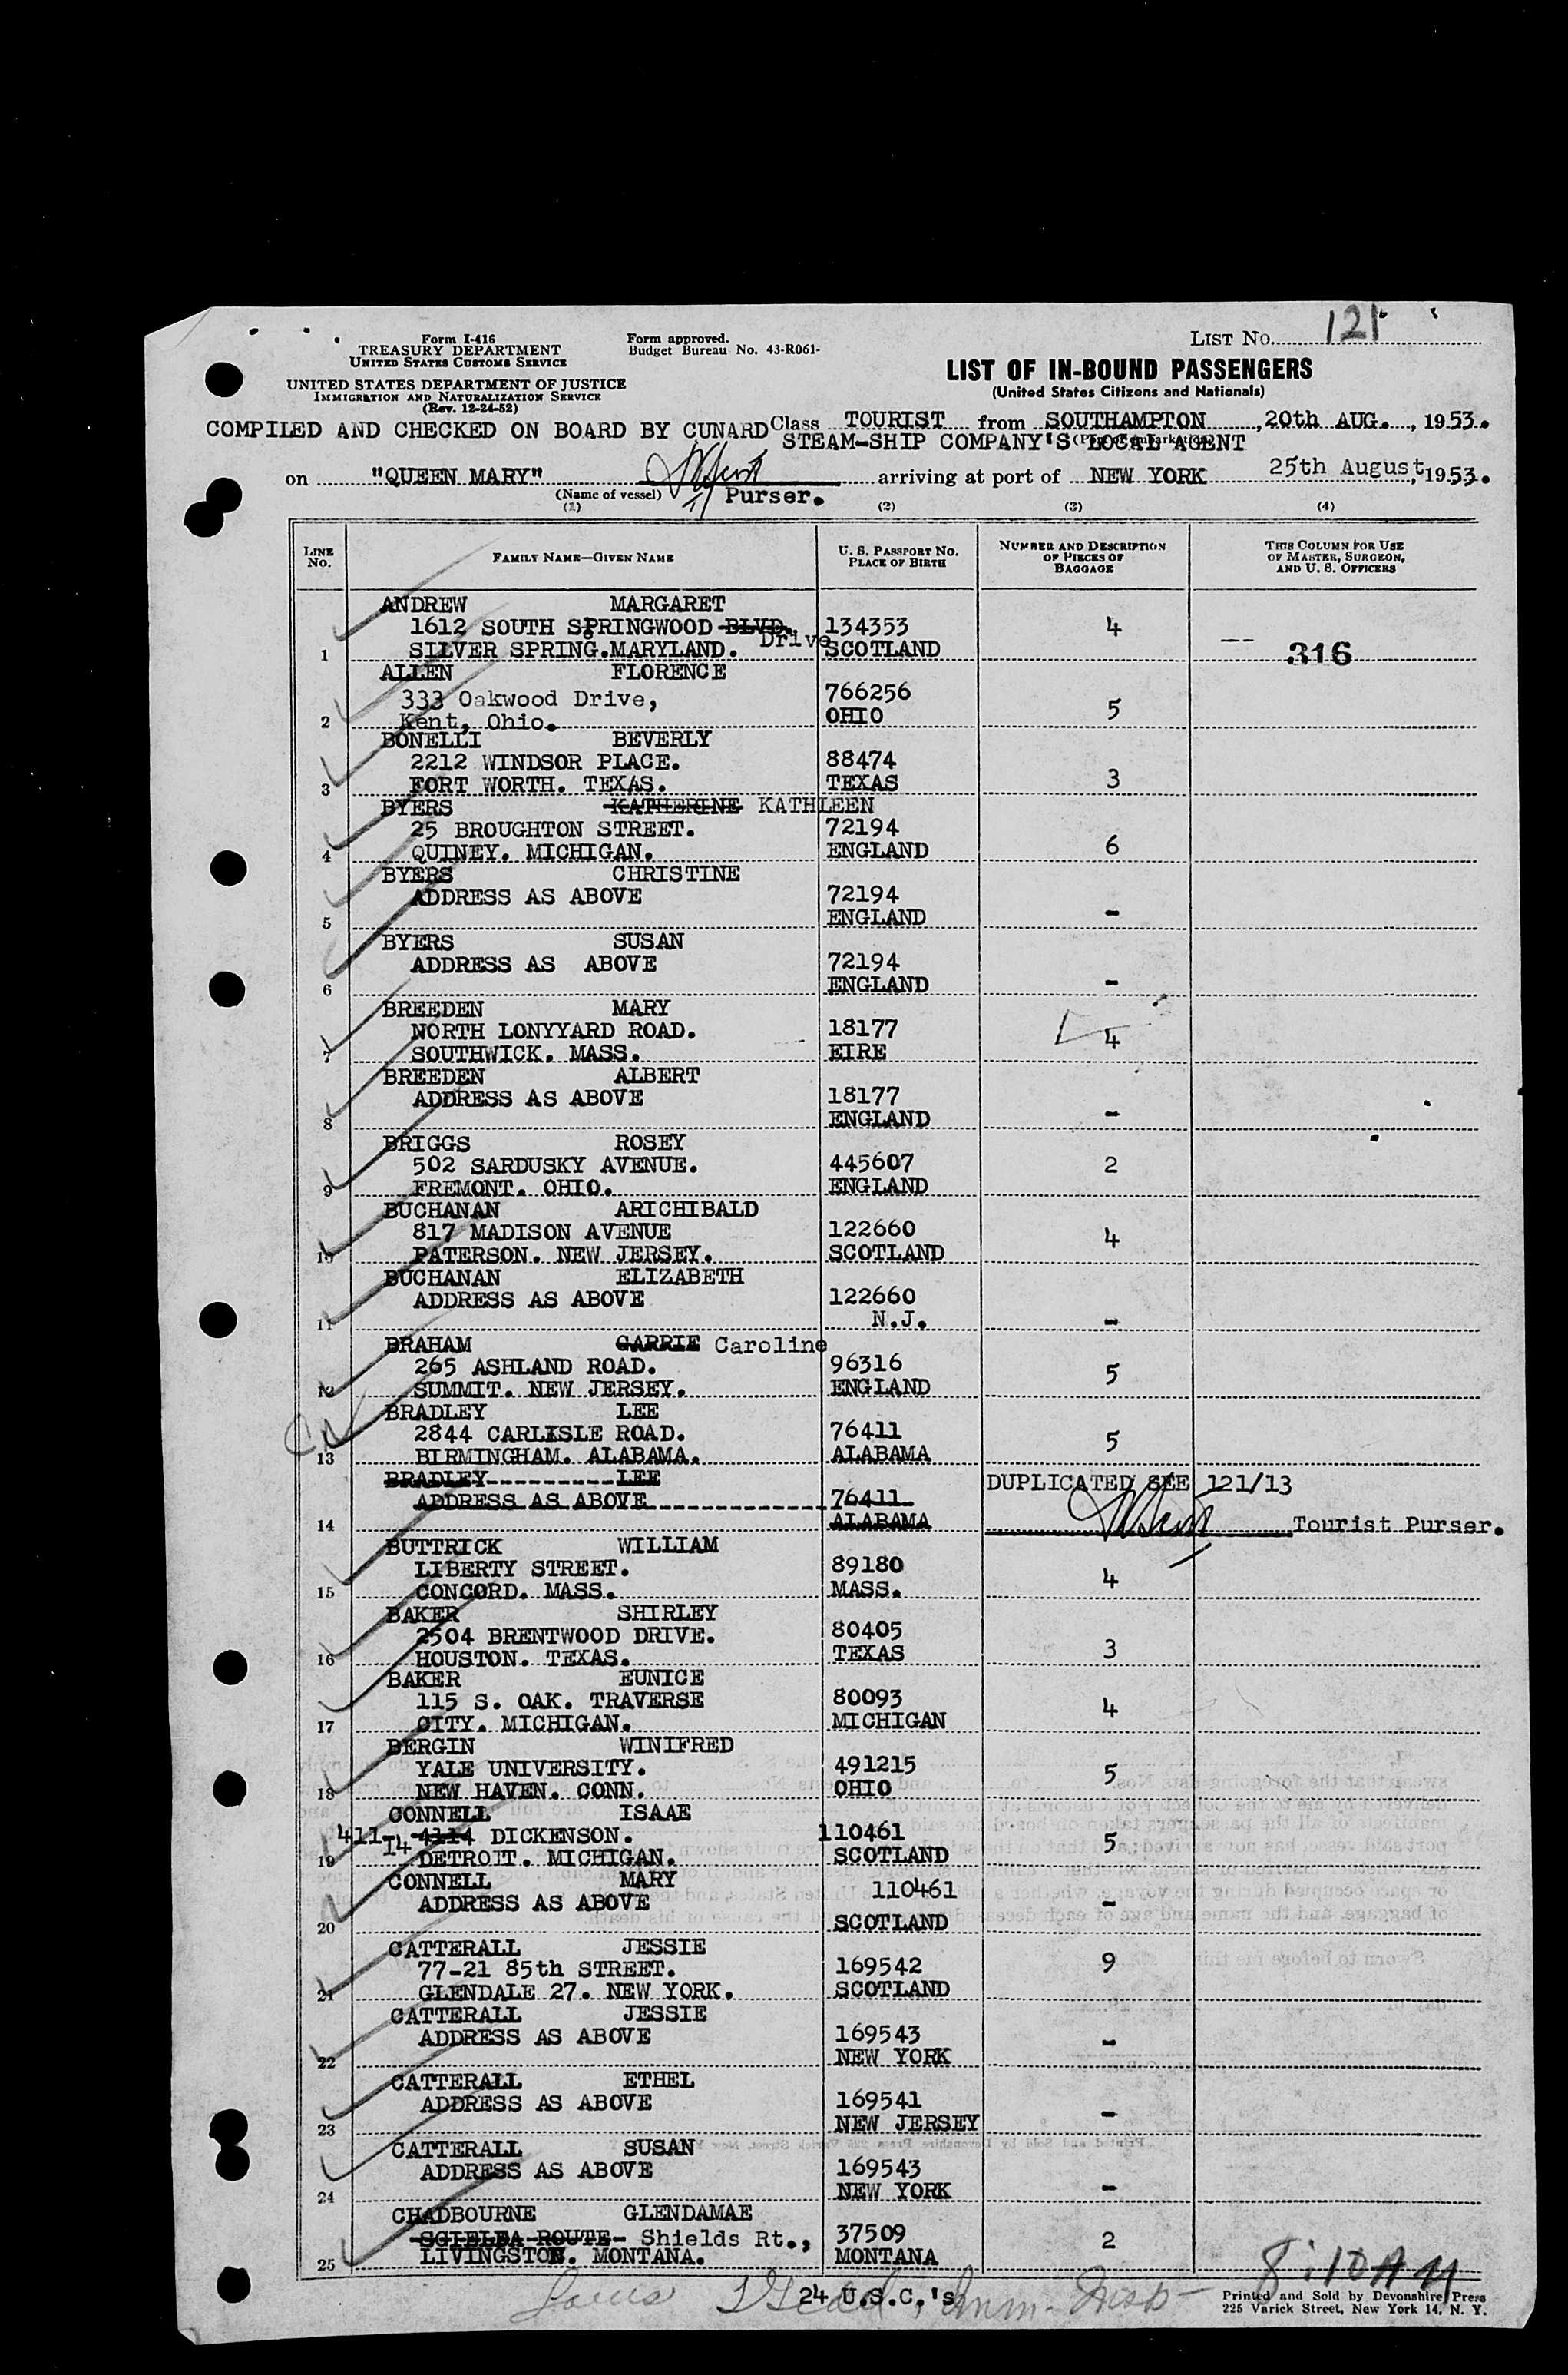 Form I-416
TREASURY DEPARTMENT
UNITED STATES CUSTOMS SERVICE
Form approved.
Budget Bureau No. 43-R061-
LIST No. 121
UNITED STATES DEPARTMENT OF JUSTICE
IMMIGRATION AND NATURALIZATION SERVICE
(Rev. 12-24-52)
LIST OF IN-BOUND PASSENGERS
(United States Citizens and Nationals)
COMPILED AND CHECKED ON BOARD BY CUNARD Class TOURIST from SOUTHAMPTON, 20th AUG., 1953.
STEAM-SHIP COMPANY'S LOCAL AGENT
on "QUEEN MARY" arriving at port of NEW YORK 25th August, 1953.
(Name of vessel) Purser.
(1) (2) (3) (4)
LINE No. FAMILY NAME—GIVEN NAME U. S. PASSPORT NO. PLACE OF BIRTH NUMBER AND DESCRIPTION OF PIECES OF BAGGAGE THIS COLUMN FOR USE OF MASTER, SURGEON, AND U. S. OFFICERS
ANDREW MARGARET
1612 SOUTH SPRINGWOOD BLVD. Drive 134353 4
1 SILVER SPRING.MARYLAND. SCOTLAND 316
ALLEN FLORENCE
333 Oakwood Drive, 766256 5
2 Kent, Ohio. OHIO
BONELLI BEVERLY
2212 WINDSOR PLACE. 88474
3 FORT WORTH. TEXAS. TEXAS 3
BYERS KATHERINE KATHLEEN
25 BROUGHTON STREET. 72194
4 QUINEY. MICHIGAN. ENGLAND 6
BYERS CHRISTINE
ADDRESS AS ABOVE 72194
5 ENGLAND -
BYERS SUSAN
ADDRESS AS ABOVE 72194
6 ENGLAND -
BREEDEN MARY
NORTH LONYYARD ROAD. 18177 4
7 SOUTHWICK. MASS. EIRE
BREEDEN ALBERT
ADDRESS AS ABOVE 18177
8 ENGLAND -
BRIGGS ROSEY
502 SARDUSKY AVENUE. 445607 2
9 FREMONT. OHIO. ENGLAND
BUCHANAN ARICHIBALD
817 MADISON AVENUE 122660 4
10 PATERSON. NEW JERSEY. SCOTLAND
BUCHANAN ELIZABETH
ADDRESS AS ABOVE 122660
11 N.J. -
BRAHAM CARRIE Caroline
265 ASHLAND ROAD. 96316 5
12 SUMMIT. NEW JERSEY. ENGLAND
BRADLEY LEE
2844 CARLISLE ROAD. 76411 5
13 BIRMINGHAM. ALABAMA. ALABAMA
BRADLEY----------LEE DUPLICATED SEE 121/13
ADDRESS AS ABOVE 76411
14 ALABAMA Tourist Purser.
BUTTRICK WILLIAM
LIBERTY STREET. 89180 4
15 CONCORD. MASS. MASS.
BAKER SHIRLEY
2504 BRENTWOOD DRIVE. 80405
16 HOUSTON. TEXAS. TEXAS 3
BAKER EUNICE
115 S. OAK. TRAVERSE 80093 4
17 CITY. MICHIGAN. MICHIGAN
BERGIN WINIFRED
YALE UNIVERSITY. 491215 5
18 NEW HAVEN. CONN. OHIO
CONNELL ISAAE
411-14 4114 DICKENSON. 110461 5
19 DETROIT. MICHIGAN. SCOTLAND
CONNELL MARY 110461
ADDRESS AS ABOVE -
20 SCOTLAND
CATTERALL JESSIE
77-21 85th STREET. 169542 9
21 GLENDALE 27. NEW YORK. SCOTLAND
CATTERALL JESSIE
ADDRESS AS ABOVE 169543 -
22 NEW YORK
CATTERALL ETHEL
ADDRESS AS ABOVE 169541 -
23 NEW JERSEY
CATTERALL SUSAN
ADDRESS AS ABOVE 169543
24 NEW YORK -
CHADBOURNE GLENDAMAE
SGIELBA ROUTE- Shields Rt., 37509 2
25 LIVINGSTON. MONTANA. MONTANA
8:10 AM
24 U.S.C.'s
Printed and Sold by Devonshire Press
225 Varick Street, New York 14, N. Y.